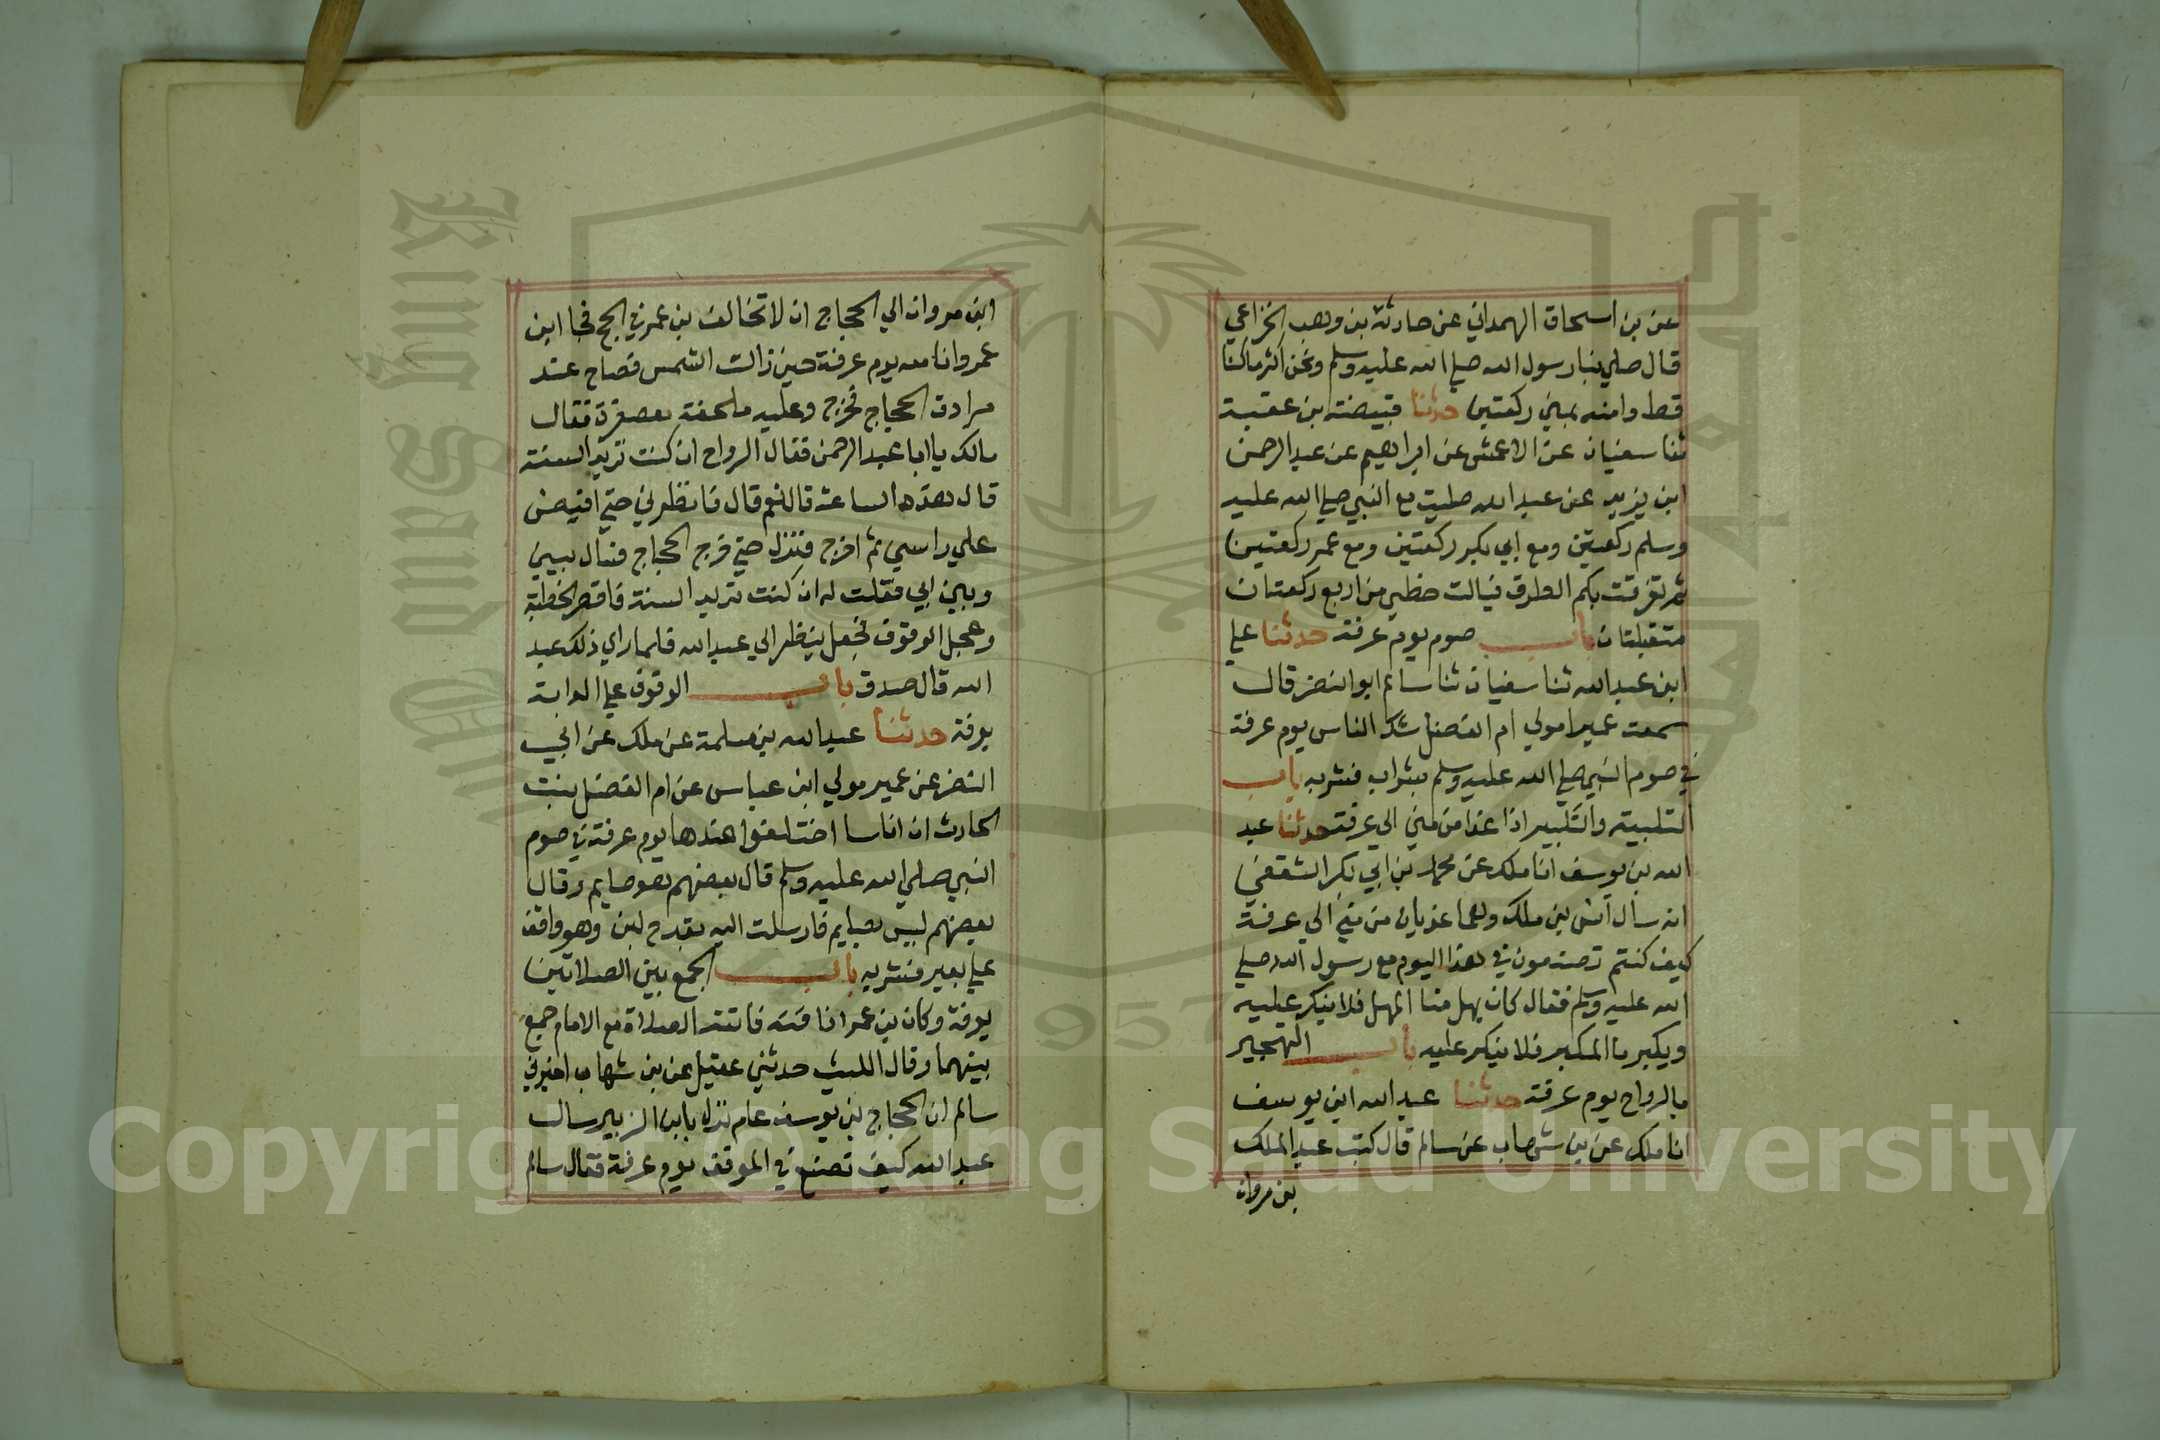 عن بن اسحاق الهمداني عن حارثة بن وهب الخزاعي
قال صلي بنا رسول الله صلي الله عليه وسلم ونحن اكثر ما كنا
قط وامنه بمني ركعتين حدثنا قبيصة بن عقبة
ثنا سفيان عن الاعمش عن ابراهيم عن عبد الرحمن
ابن يزيد عن عبد الله صليت مع النبي صلي الله عليه
وسلم ركعتين ومع ابي بكر ركعتين ومع عمر ركعتين
ثم تفرقت بكم الطرق فيالت حظي من اربع ركعتان
متقبلتان باب صوم يوم عرفة حدثنا علي
ابن عبد الله ثنا سفيان ثنا سالم ابو النضر قال
سمعت عميرا مولي ام الفضل شك الناس يوم عرفة
في صوم النبي صلي الله عليه وسلم بشراب فشربه باب
التلبية والتكبير اذا غدا من مني الي عرفة حدثنا عبد
الله بن يوسف انا ملك عن محمد بن ابي بكر الثقفي
انه سأل انس بن ملك وهما غديان من مني الي عرفة
كيف كنتم تصنعون في هذا اليوم مع رسول الله صلي
الله عليه وسلم فقال كان يهل منا المهل فلا ينكر عليه
ويكبر منا المكبر فلا ينكر عليه باب التهجير
بالرواح يوم عرفة حدثنا عبد الله ابن يوسف
انا ملك عن بن شهاب عن سالم قال كتب عبد الملك
بن مروان
ابن مروان الي الحجاج ان لا تخالف بن عمر في الحج فجا ابن
عمر وانا معه يوم عرفة حين زالت الشمس فصاح عند
سرادق الحجاج فخرج وعليه ملحفة معصفرة فقال
مالك يا ابا عبد الرحمن فقال الرواح ان كنت تريد السنة
قال هذه الساعة قال نعم قال فانظرني حتي افيض
علي راسي ثم اخرج فنزل حتي خرج الحجاج فسال بيني
وبين ابي فقلت له ان كنت تريد السنة فاقصر الخطبة
وعجل الوقوف فجعل ينظر الي عبد الله فلما راي ذلك عبد
الله قال صدق باب الوقوف علي الدابة
بعرفة حدثنا عبد الله بن مسلمة عن ملك عن ابي
النضر عن عمير مولي ابن عباس عن ام الفضل بنت
الحارث ان اناسا اختلفوا عندها يوم عرفة في صوم
النبي صلي الله عليه وسلم قال بعضهم هو صايم وقال
بعضهم ليس بصايم فارسلت اليه بقدح لبن وهو واقف
علي بعير فشربه باب الجمع بين الصلاتين
بعرفة وكان بن عمر اذا فاتته الصلاة مع الامام جمع
بينهما وقال الليث حدثني عقيل عن بن شهاب اخبرني
سالم ان الحجاج بن يوسف عام نزل بابن الزبير سال
عبد الله كيف تصنع في الموقف يوم عرفة فقال سالم
King Saud University
جامعة الملك سعود
1957
Copyright © King Saud University